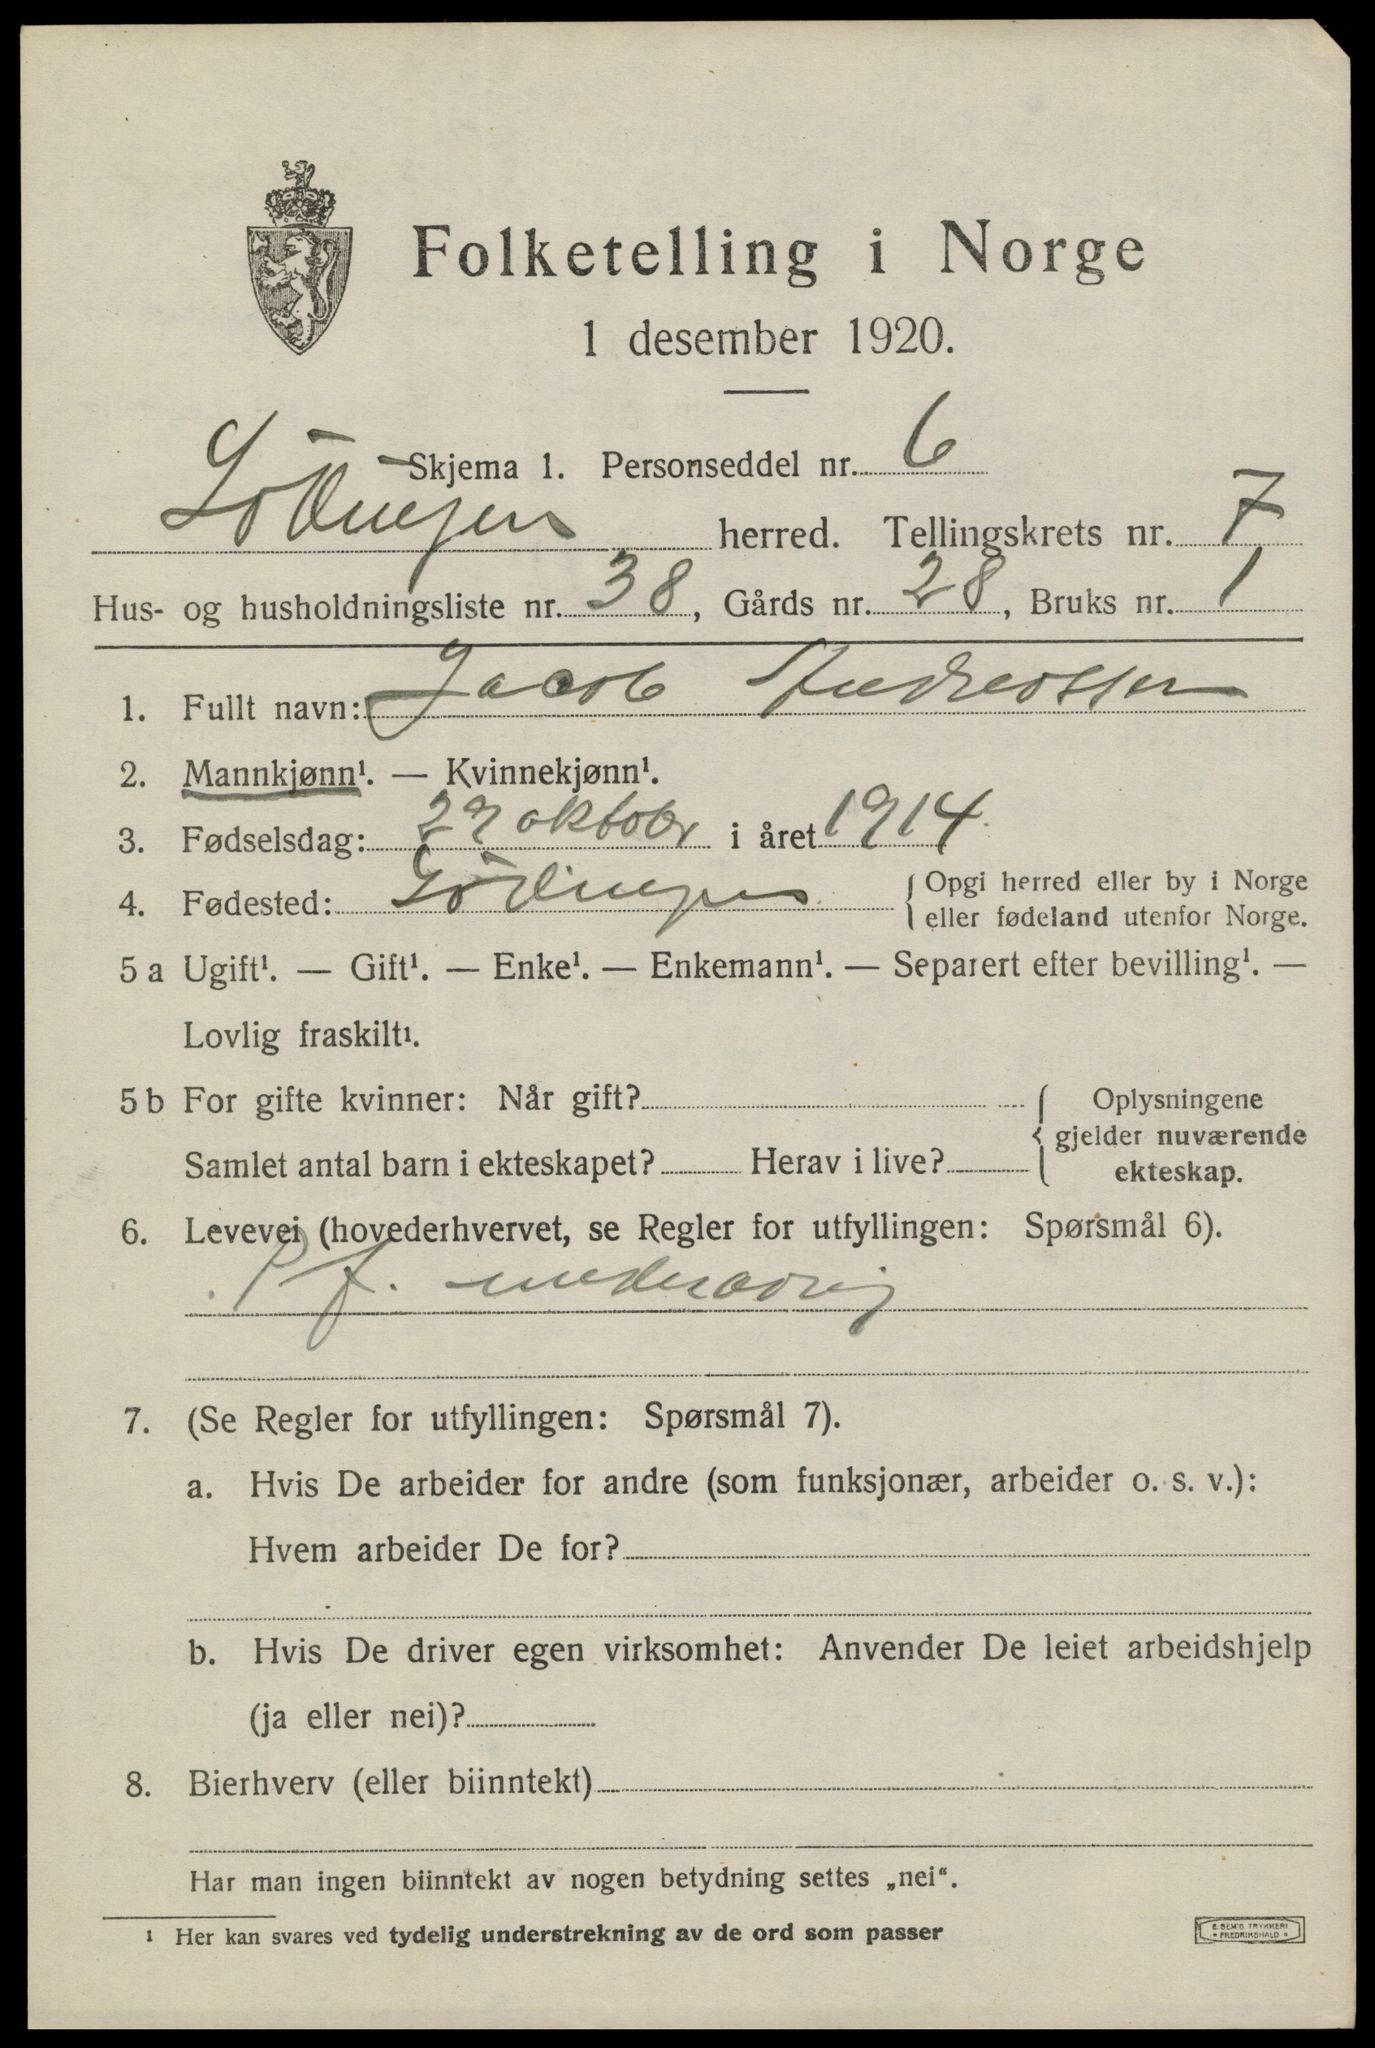 Folketelling i Norge
1 desember 1920.
Skjema 1. Personseddel nr. 6
Lödingen herred. Tellingskrets nr. 7
Hus- og husholdningsliste nr. 38, Gårds nr. 28, Bruks nr. 1
1. Fullt navn: Jacob Andreassen
2. Mannkjønn¹. — Kvinnekjønn¹.
3. Fødselsdag: 29 oktober i året 1914
4. Fødested: Lödingen { Opgi herred eller by i Norge
eller fødeland utenfor Norge.
5 a Ugift¹. — Gift¹. — Enke¹. — Enkemann¹. — Separert efter bevilling¹. —
Lovlig fraskilt¹.
5 b For gifte kvinner: Når gift?
Samlet antal barn i ekteskapet? Herav i live?
{ Oplysningene
gjelder nuværende
ekteskap.
6. Levevei (hovederhvervet, se Regler for utfyllingen: Spørsmål 6).
f. mindreårig
7. (Se Regler for utfyllingen: Spørsmål 7).
a. Hvis De arbeider for andre (som funksjonær, arbeider o. s. v.):
Hvem arbeider De for?
b. Hvis De driver egen virksomhet: Anvender De leiet arbeidshjelp
(ja eller nei)?
8. Bierhverv (eller biinntekt)
Har man ingen biinntekt av nogen betydning settes „nei“.
¹ Her kan svares ved tydelig understrekning av de ord som passer
E. SEM'S TRYKKERI
* FREDRIKSHALD *